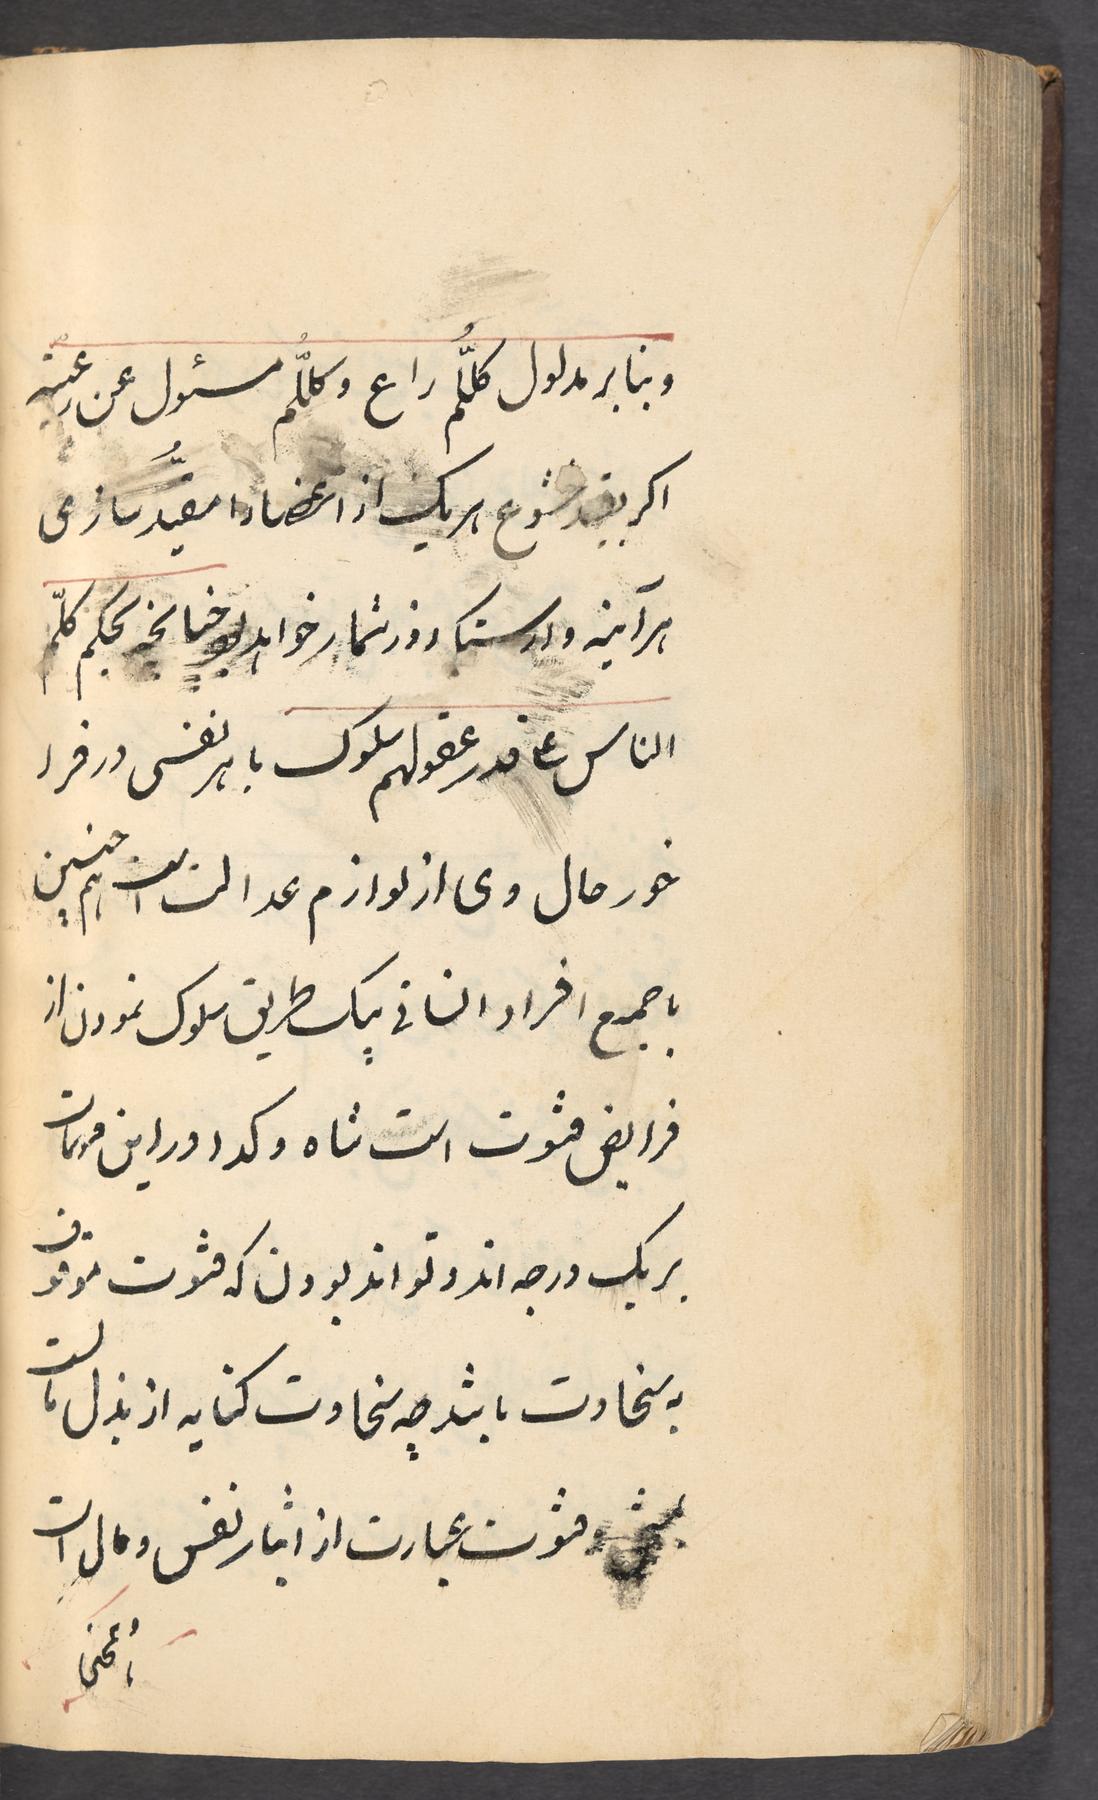 و بنابر مدلول کلّکُم راع و کلّکُم مسئول عن رعیّته
اکر بقید خشوع هر یک از اعضا را مقیّد سازی
هر آینه وا رستکار روز شمار خواهد بود چنانچه بحکم کلّم
الناس علی قدر عقولهم سلوک با هر نفسی در فرا
خور حال وی از لوازم عدالت است همچنین
با جمیع افراد انسانی بیک طریق سلوک نمودن از
فرایض فتوت است شاه و کدا در این
بر یک درجه اند و تواند بودن که فتوت موقوف
به سخاوت باشد چه سخاوت کنایه از بذل مالست
و فتوت عبارت از ایثار نفس و مال است